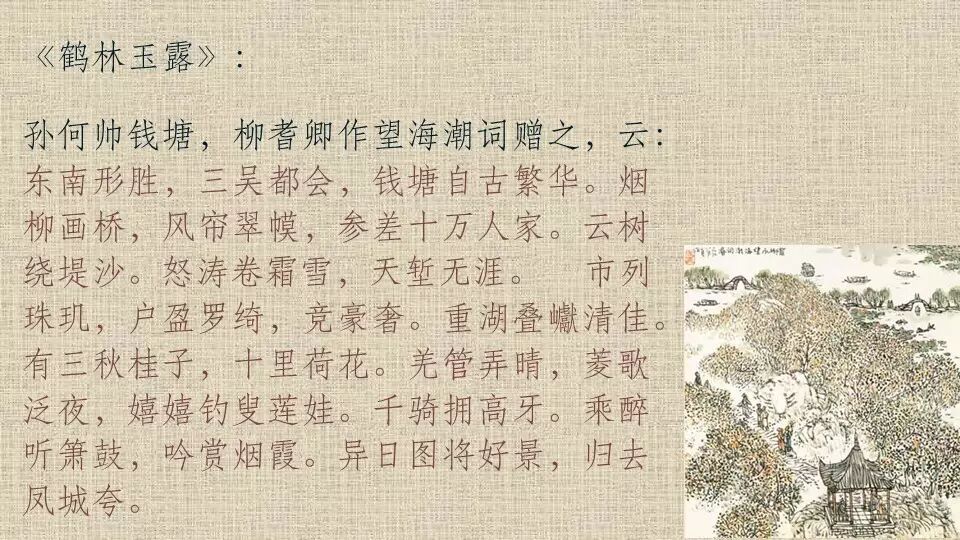 《鹤林玉露》:
孙何帅钱塘，柳耆卿作望海潮词赠之，云:
东南形胜，三吴都会，钱塘自古繁华。烟
柳画桥，风帘翠幙，参差十万人家。云树
绕堤沙。怒涛卷霜雪，天堑无涯。　市列
珠玑，户盈罗绮，竞豪奢。重湖叠巘清佳。
有三秋桂子，十里荷花。羌管弄晴，菱歌
泛夜，嬉嬉钓叟莲娃。千骑拥高牙。乘醉
听箫鼓，吟赏烟霞。异日图将好景，归去
凤城夸。